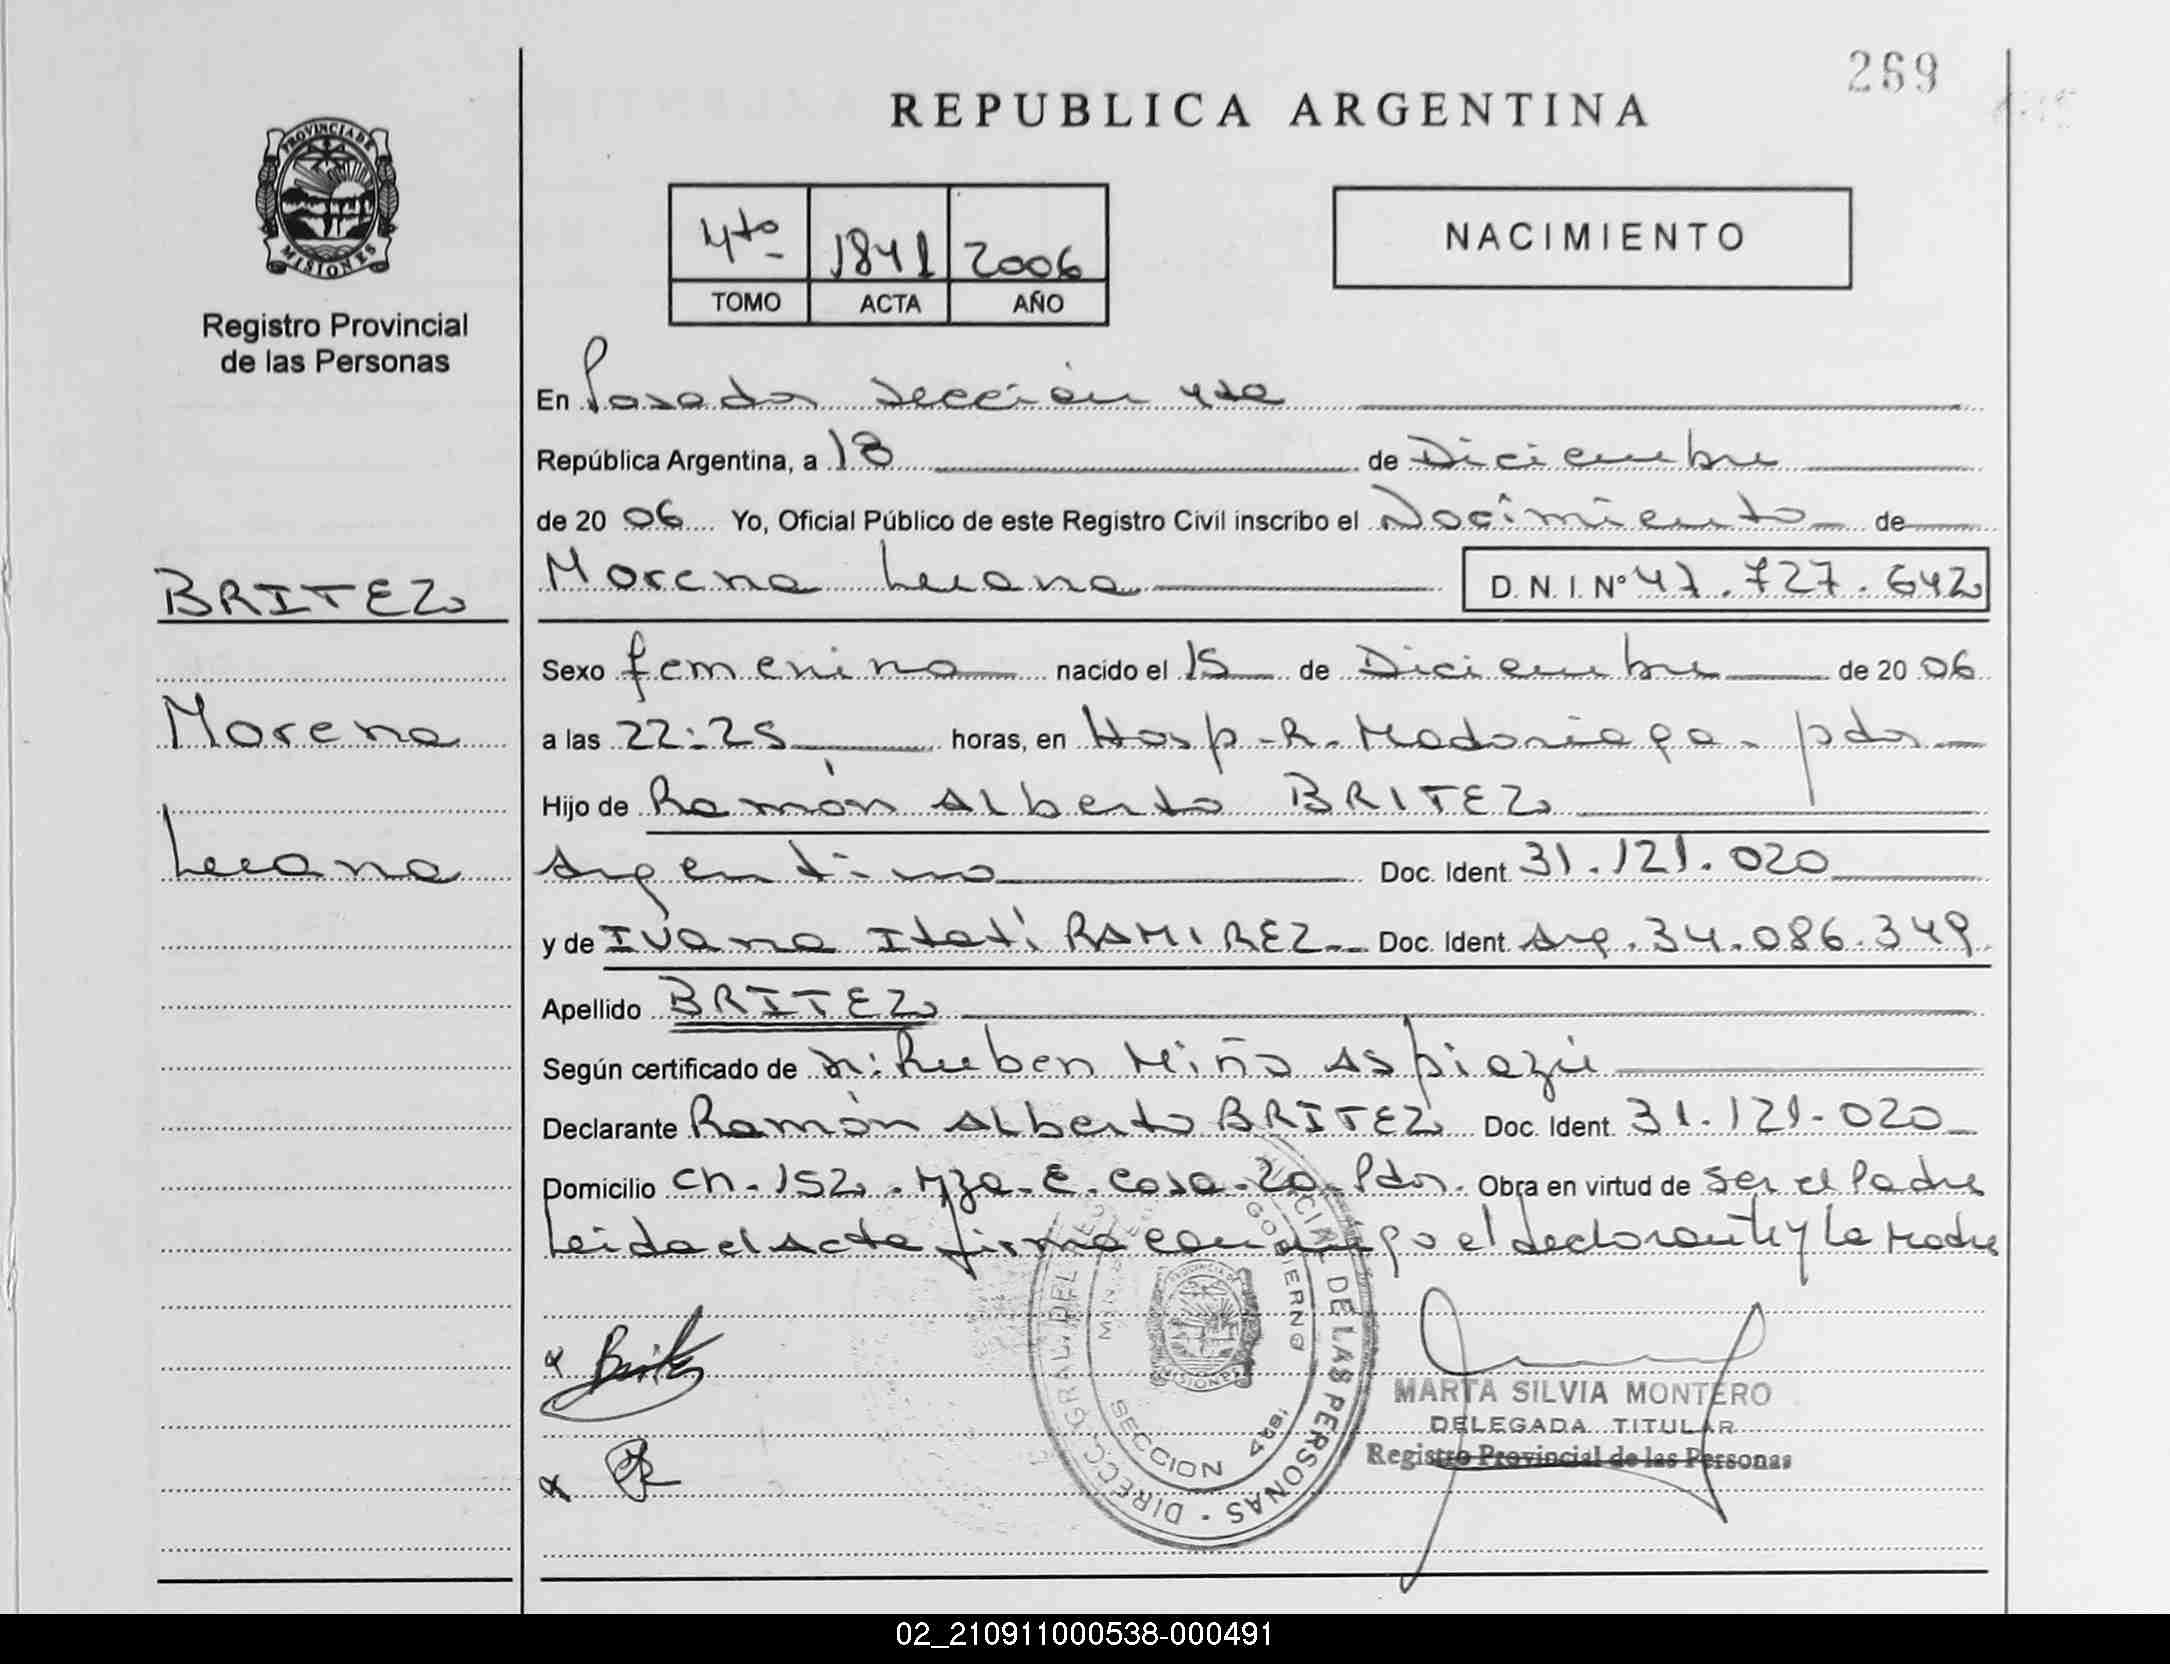 269
REPUBLICA ARGENTINA
PROVINCIA DE
MISIONES
Registro Provincial
de las Personas
4to 1841 2006
TOMO ACTA AÑO
NACIMIENTO
En Posadas Sección 4ta
República Argentina, a 18 de Diciembre
de 20 06 Yo, Oficial Público de este Registro Civil inscribo el Nacimiento de
BRITEZ
Morena Luana D. N. I. Nº 47.727.642
Sexo femenino nacido el 15 de Diciembre de 20 06
Morena
a las 22:25 horas, en Hosp. R. Madariaga. pdas
Hijo de Ramón Alberto BRITEZ
Luana
Argentino Doc. Ident. 31.121.020
y de Ivana Itatí RAMIREZ Doc. Ident. Arg. 34.086.349
Apellido BRITEZ
Según certificado de Ruben Miño Aspiazú
Declarante Ramón Alberto BRITEZ Doc. Ident. 31.121.020
Domicilio Ch. 152. Mza. E. Casa. 20. Pdas. Obra en virtud de ser el Padre
Leida el Acta firma conmigo el declarante y la Madre
Britez
MARTA SILVIA MONTERO
DELEGADA TITULAR
Registro Provincial de las Personas
DE LAS PERSONAS - DIRECC. GRAL. DEL
GOBIERNO
SECCION 4ta
02_210911000538-000491